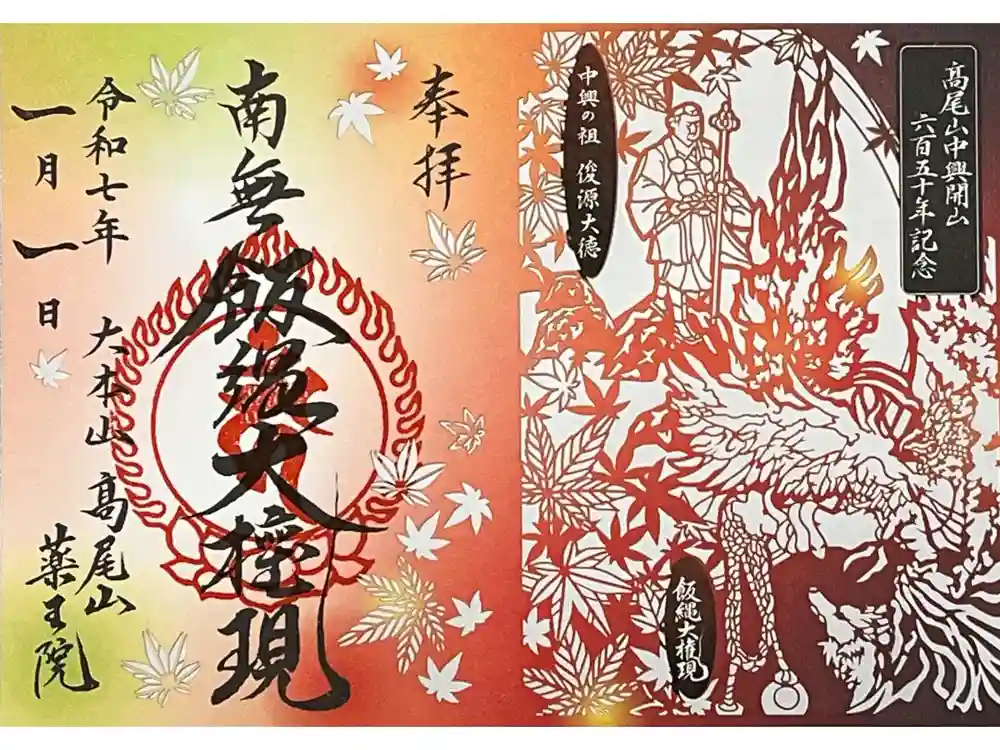 高尾山中興開山
六百五十年記念
中興の祖　俊源大徳
飯縄大権現
奉拝
南無飯縄大権現
令和七年
一月一日
大本山　髙尾山
薬王院